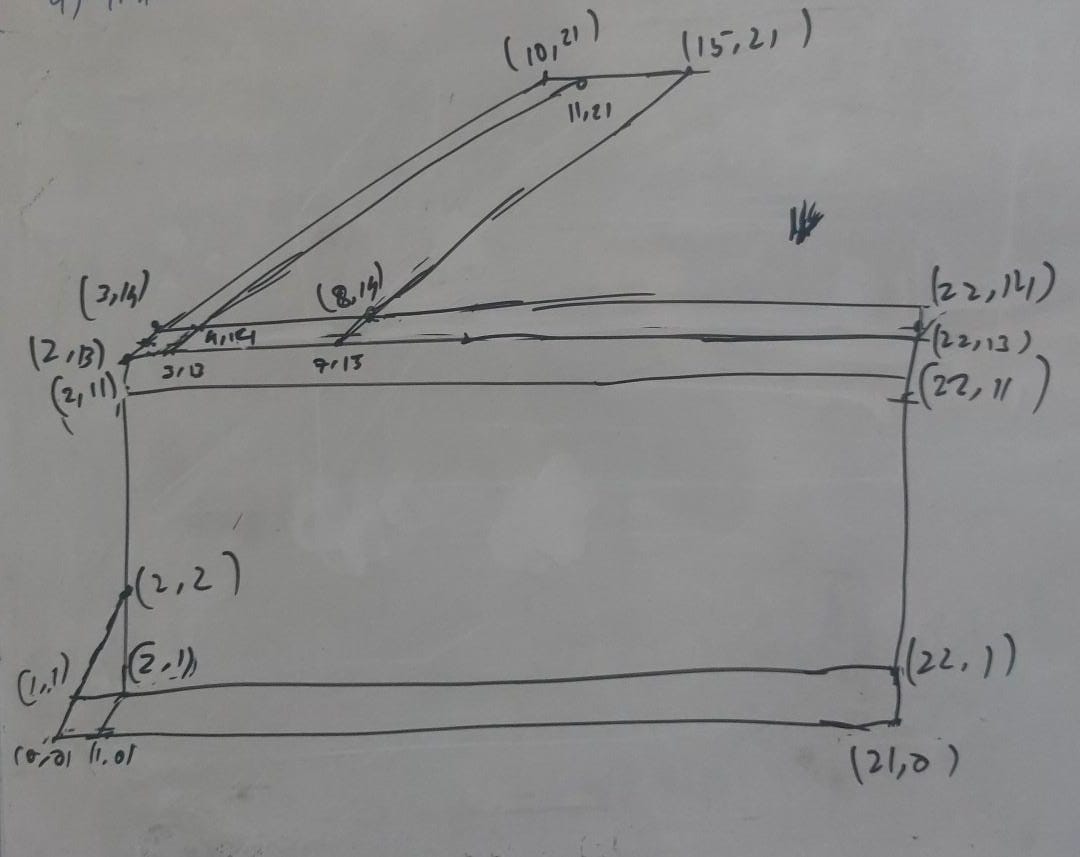 (10,21)
(15,21)
11,21
(3,14)
(8,14)
(22,14)
4,14
(2,13)
3,13
7,13
(22,13)
(2,11)
(22,11)
(2,2)
(1,1)
(2,1)
(22,1)
(0,0)
(1,0)
(21,0)